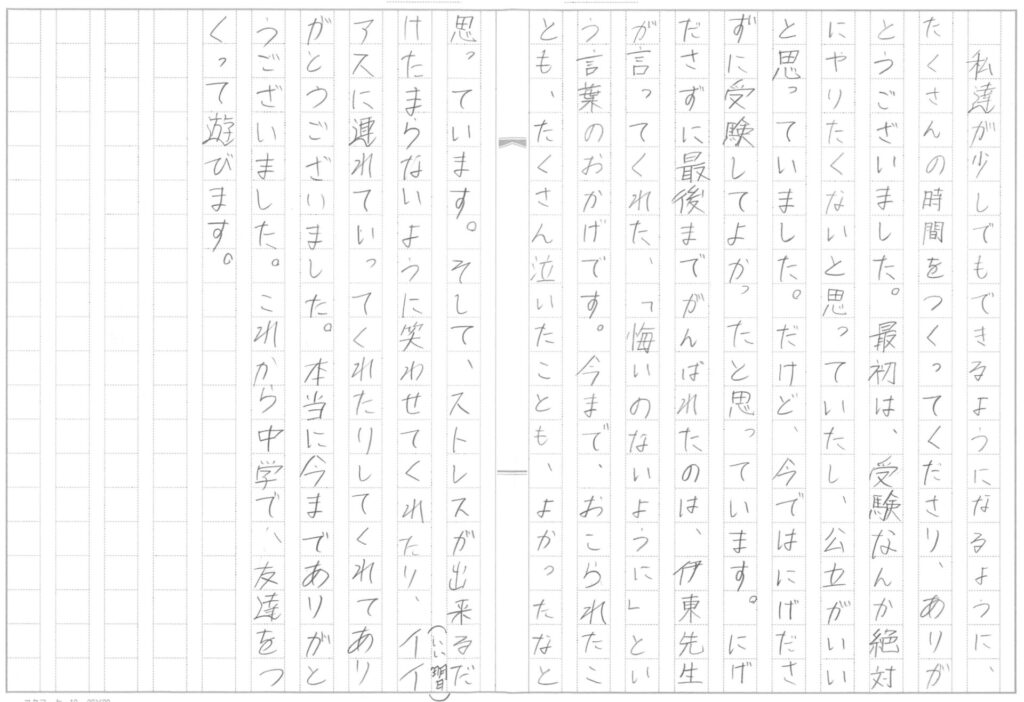 私達が少しでもできるようになるように、
たくさんの時間をつくってくださり、ありが
とうございました。最初は、受験なんか絶対
にやりたくないと思っていたし、公立がいい
と思っていました。だけど、今ではにげださ
ずに受験してよかったと思っています。にげ
ださずに最後までがんばれたのは、伊東先生
が言ってくれた、「悔いのないように」とい
う言葉のおかげです。今まで、おこられたこ
とも、たくさん泣いたことも、よかったなと
思っています。そして、ストレスが出来るだ
けたまらないように笑わせてくれたり、イイ
(いい習)
アスに連れていってくれたりしてくれてあり
がとうございました。本当に今まであり­がと
うございました。これから中学で、友達をつ
くって遊びます。